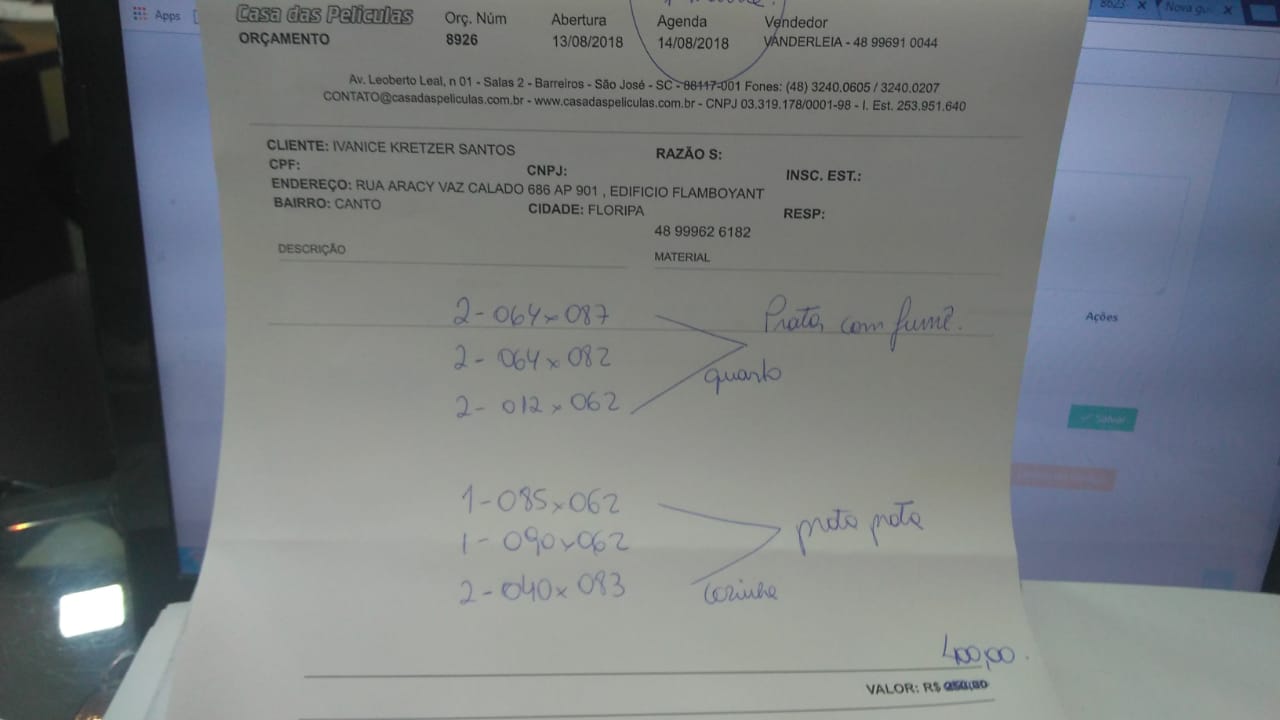 Apps
8623-
Nova gu
Casa das Películas
Orç. Núm
Abertura
Agenda
Vendedor
ORÇAMENTO
8926
13/08/2018
14/08/2018
VANDERLEIA - 48 99691 0044
Av. Leoberto Leal, n 01 - Salas 2 - Barreiros - São José - SC - 88117-001 Fones: (48) 3240.0605 / 3240.0207
CONTATO@casadaspeliculas.com.br - www.casadaspeliculas.com.br - CNPJ 03.319.178/0001-98 - I. Est. 253.951.640
CLIENTE: IVANICE KRETZER SANTOS
RAZÃO S:
CPF:
CNPJ:
INSC. EST.:
ENDEREÇO: RUA ARACY VAZ CALADO 686 AP 901 , EDIFICIO FLAMBOYANT
BAIRRO: CANTO
CIDADE: FLORIPA
RESP:
48 99962 6182
DESCRIÇÃO
MATERIAL
2- 064x087
Prata com fumê.
2- 064x082
quarto
2- 012x062
1-085x062
prata prata
1- 090x062
2-040x083
Cozinha
400,00.
VALOR: R$
Ações
Salvar